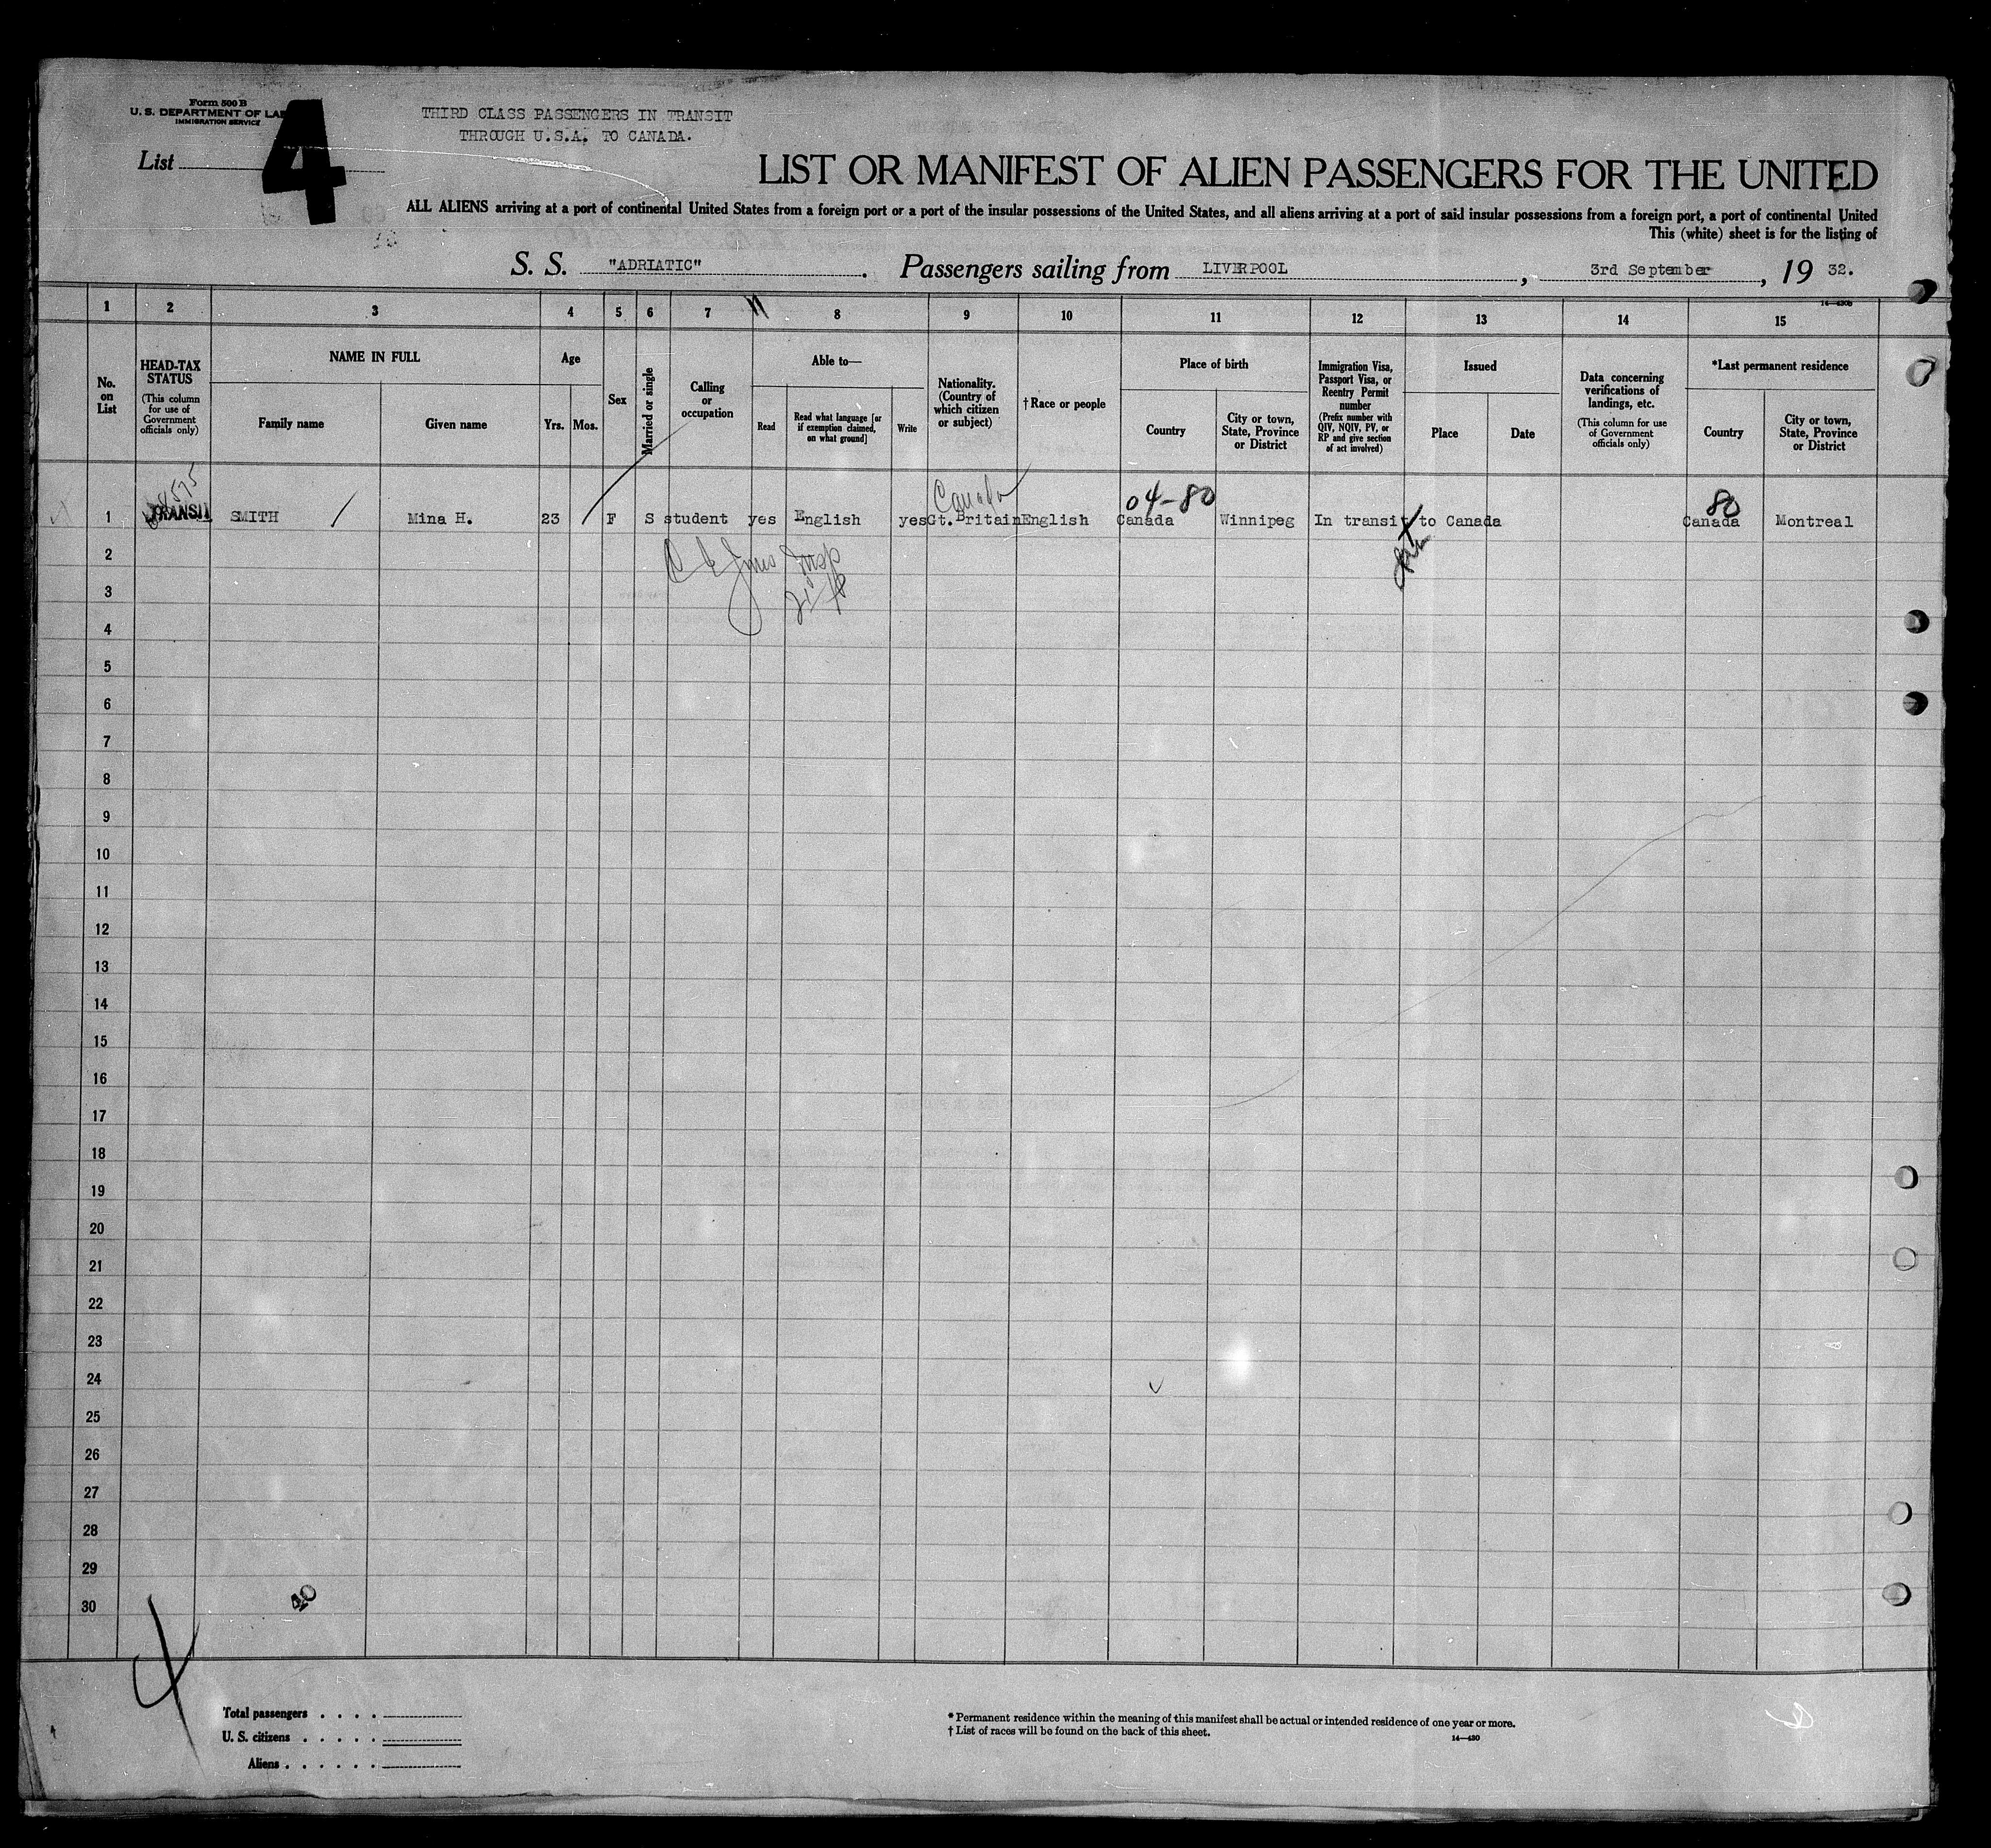 Form 500 B
U. S. DEPARTMENT OF LA
IMMIGRATION SERVICE
List
4
THIRD CLASS PASSENGERS IN TRANSIT
THROUGH U.S.A. TO CANADA.
LIST OR MANIFEST OF ALIEN PASSENGERS FOR THE UNITED
ALL ALIENS arriving at a port of continental United States from a foreign port or a port of the insular possessions of the United States, and all aliens arriving at a port of said insular possessions from a foreign port, a port of continental United
This (white) sheet is for the listing of
S. S. "ADRIATIC". Passengers sailing from LIVERPOOL, 3rd September, 19 32.
14—430B
1 2 3 4 5 6 7 8 9 10 11 12 13 14 15
No. on List
HEAD-TAX STATUS
(This column for use of Government officials only)
NAME IN FULL
Family name
Given name
Age
Yrs. Mos.
Sex
Married or single
Calling or occupation
Able to—
Read
Read what language [or if exemption claimed, on what ground]
Write
Nationality. (Country of which citizen or subject)
†Race or people
Place of birth
Country
City or town, State, Province or District
Immigration Visa, Passport Visa, or Reentry Permit number
(Prefix number with QIV, NQIV, PV, or RP and give section of act involved)
Issued
Place
Date
Data concerning verifications of landings, etc.
(This column for use of Government officials only)
*Last permanent residence
Country
City or town, State, Province or District
Canada
04-80
80
1 TRANSIT SMITH Mina H. 23 F S student yes English yes Gt.Britain English Canada Winnipeg In transit to Canada Canada Montreal
2
3
4
5
6
7
8
9
10
11
12
13
14
15
16
17
18
19
20
21
22
23
24
25
26
27
28
29
30
40
4
Total passengers . . . .
U. S. citizens . . . . .
Aliens . . . . . .
* Permanent residence within the meaning of this manifest shall be actual or intended residence of one year or more.
† List of races will be found on the back of this sheet.
14—430